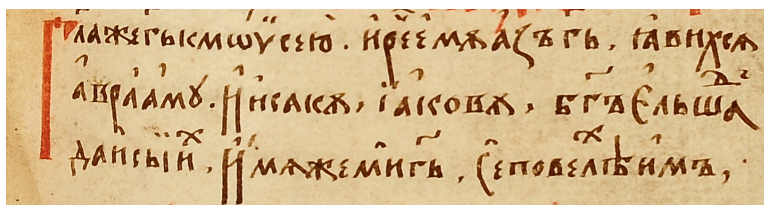 Глажегькмѡѷсею̀. и҆рє́емѧа҆зъгь, ꙗ҆вихсѧ
а҆врⷶа́мꙋ. и҆исакѧ, і҆а́ковѧ, бг҃ъє҆льшаⷣ
даи҆сы́иⷯ, и҆мѧжеми̑гн҃ъ, сеповелѣⷯи҆мъ,